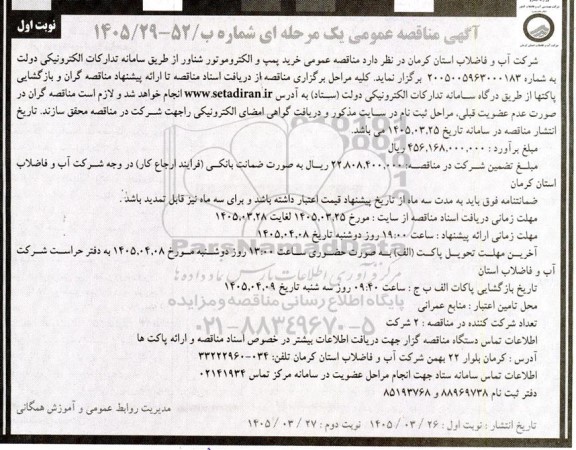 نوبت اول
آگهی مناقصه عمومی یک مرحله ای شماره ب/۵۲-۱۴۰۵/۲۹
شرکت آب و فاضلاب استان کرمان در نظر دارد مناقصه عمومی خرید پمپ و الکتروموتور شناور از طریق سامانه تدارکات الکترونیکی دولت
به شماره ۲۰۰۵۰۰۵۹۶۳۰۰۰۱۸۳ برگزار نماید. کلیه مراحل برگزاری مناقصه از دریافت اسناد مناقصه تا ارائه پیشنهاد مناقصه گران و بازگشایی
پاکتها از طریق درگاه سامانه تدارکات الکترونیکی دولت (ستاد) به آدرس www.setadiran.ir انجام خواهد شد و لازم است مناقصه گران در
صورت عدم عضویت قبلی، مراحل ثبت نام در سایت مذکور و دریافت گواهی امضای الکترونیکی راجهت شرکت در مناقصه محقق سازند. تاریخ
انتشار مناقصه در سامانه تاریخ ۱۴۰۵.۰۳.۲۵ می باشد.
مبلغ برآورد : ۴۵۶,۱۶۸,۰۰۰,۰۰۰ ریال
مبلغ تضمین شرکت در مناقصه: ۲۲,۸۰۸,۴۰۰,۰۰۰ ریال به صورت ضمانت بانکی (فرایند ارجاع کار) در وجه شرکت آب و فاضلاب
استان کرمان
ضمانتنامه فوق باید به مدت سه ماه از تاریخ پیشنهاد قیمت اعتبار داشته باشد و برای سه ماه نیز قابل تمدید باشد .
مهلت زمانی دریافت اسناد مناقصه از سایت : مورخ ۱۴۰۵.۰۳.۲۵ لغایت ۱۴۰۵.۰۳.۲۸
مهلت زمانی ارائه پیشنهاد : ساعت ۱۹:۰۰ روز دوشنبه تاریخ ۱۴۰۵.۰۴.۰۸
آخرین مهلت تحویل پاکت (الف) به صورت حضوری ساعت ۱۳:۰۰ روز دوشنبه مورخ ۱۴۰۵.۰۴.۰۸ به دفتر حراست شرکت
آب و فاضلاب استان
تاریخ بازگشایی پاکات الف ب ج : ساعت ۰۹:۴۰ روز سه شنبه تاریخ ۱۴۰۵.۰۴.۰۹
محل تامین اعتبار : منابع عمرانی
تعداد شرکت کننده در مناقصه : ۲ شرکت
اطلاعات تماس دستگاه مناقصه گزار جهت دریافت اطلاعات بیشتر در خصوص اسناد مناقصه و ارائه پاکت ها
آدرس : کرمان بلوار ۲۲ بهمن شرکت آب و فاضلاب استان کرمان تلفن: ۰۳۴-۳۳۲۲۲۹۶۰
اطلاعات تماس سامانه ستاد جهت انجام مراحل عضویت در سامانه مرکز تماس ۰۲۱۴۱۹۳۴
دفتر ثبت نام ۸۸۹۶۹۷۳۸ و ۸۵۱۹۳۷۶۸
مدیریت روابط عمومی و آموزش همگانی
تاریخ انتشار : نوبت اول : ۲۶ / ۰۳ / ۱۴۰۵ نوبت دوم : ۲۷ / ۰۳ / ۱۴۰۵
ParsNamadData
مرکز فرآوری اطلاعات پارس نماد داده‌ها
پایگاه اطلاع رسانی مناقصه و مزایده
۰۲۱-۸۸۳۴۹۶۷۰-۵